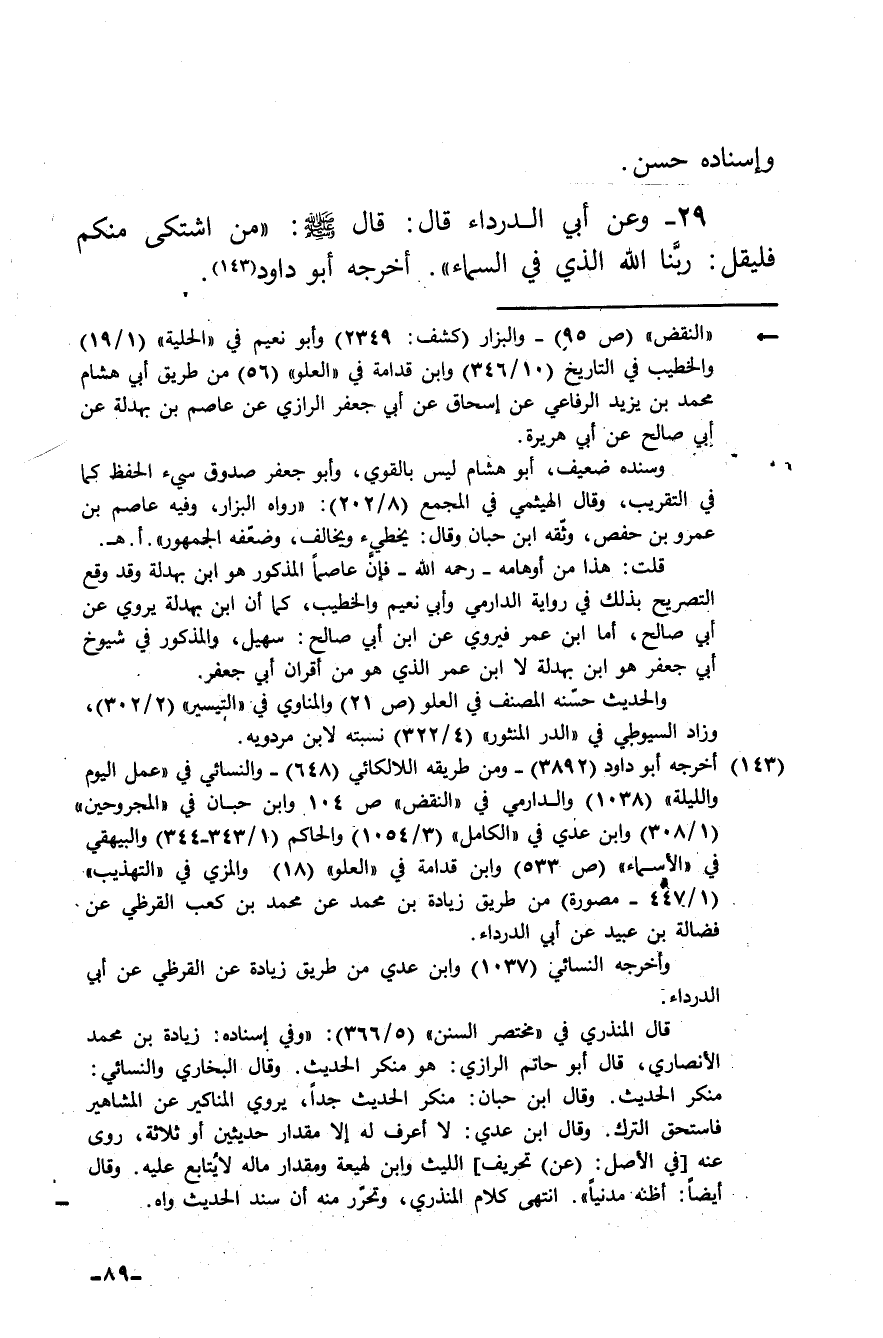 وإسناده حسن.
٢٩ـ وعن أبي الـدرداء قال: قال ﷺ: «من اشتكى منكم
فليقل: ربَّنا الله الذي في السماء». أخرجه أبو داود(١٤٣).
← «النقض» (ص ٩٥) ـ والبزار (كشف: ٢٣٤٩) وأبو نعيم في «الحلية» (١٩/١)
والخطيب في التاريخ (٣٤٦/١٠) وابن قدامة في «العلو» (٥٦) من طريق أبي هشام
محمد بن يزيد الرفاعي عن إسحاق عن أبي جعفر الرازي عن عاصم بن بهدلة عن
أبي صالح عن أبي هريرة.
وسنده ضعيف، أبو هشام ليس بالقوي، وأبو جعفر صدوق سيء الحفظ كما
في التقريب، وقال الهيثمي في المجمع (٢٠٢/٨): «رواه البزار، وفيه عاصم بن
عمرو بن حفص، وثّقه ابن حبان وقال: يخطيء ويخالف، وضعّفه الجمهور». أ. هـ.
قلت: هذا من أوهامه ـ رحمه الله ـ فإنَّ عاصماً المذكور هو ابن بهدلة وقد وقع
التصريح بذلك في رواية الدارمي وأبي نعيم والخطيب، كما أن ابن بهدلة يروي عن
أبي صالح، أما ابن عمر فيروي عن ابن أبي صالح: سهيل، والمذكور في شيوخ
أبي جعفر هو ابن بهدلة لا ابن عمر الذي هو من أقران أبي جعفر.
والحديث حسّنه المصنف في العلو (ص ٢١) والمناوي في «التيسير» (٣٠٢/٢)،
وزاد السيوطي في «الدر المنثور» (٣٢٢/٤) نسبته لابن مردويه.
(١٤٣) أخرجه أبو داود (٣٨٩٢) ـ ومن طريقه اللالكائي (٦٤٨) ـ والنسائي في «عمل اليوم
والليلة» (١٠٣٨) والـدارمي في «النقض» ص ١٠٤ وابن حبـان في «المجروحين»
(٣٠٨/١) وابن عدي في «الكامل» (١٠٥٤/٣) والحاكم (٣٤٣/١ـ٣٤٤) والبيهقي
في «الأسماء» (ص ٥٣٣) وابن قدامة في «العلو» (١٨) والمزي في «التهذيب»
(٤٤٧/١ ـ مصورة) من طريق زيادة بن محمد عن محمد بن كعب القرظي عن
فضالة بن عبيد عن أبي الدرداء.
وأخرجه النسائي (١٠٣٧) وابن عدي من طريق زيادة عن القرظي عن أبي
الدرداء.
قال المنذري في «مختصر السنن» (٣٦٦/٥): «وفي إسناده: زيادة بن محمد
الأنصاري، قال أبو حاتم الرازي: هو منكر الحديث. وقال البخاري والنسائي:
منكر الحديث. وقال ابن حبان: منكر الحديث جداً، يروي المناكير عن المشاهير
فاستحق الترك. وقال ابن عدي: لا أعرف له إلا مقدار حديثين أو ثلاثة، روى
عنه [في الأصل: (عن) تحريف] الليث وابن لهيعة ومقدار ماله لايُتابع عليه. وقال
أيضاً: أظنه مدنياً». انتهى كلام المنذري، وتحرّر منه أن سند الحديث واه.
ـ٨٩ـ